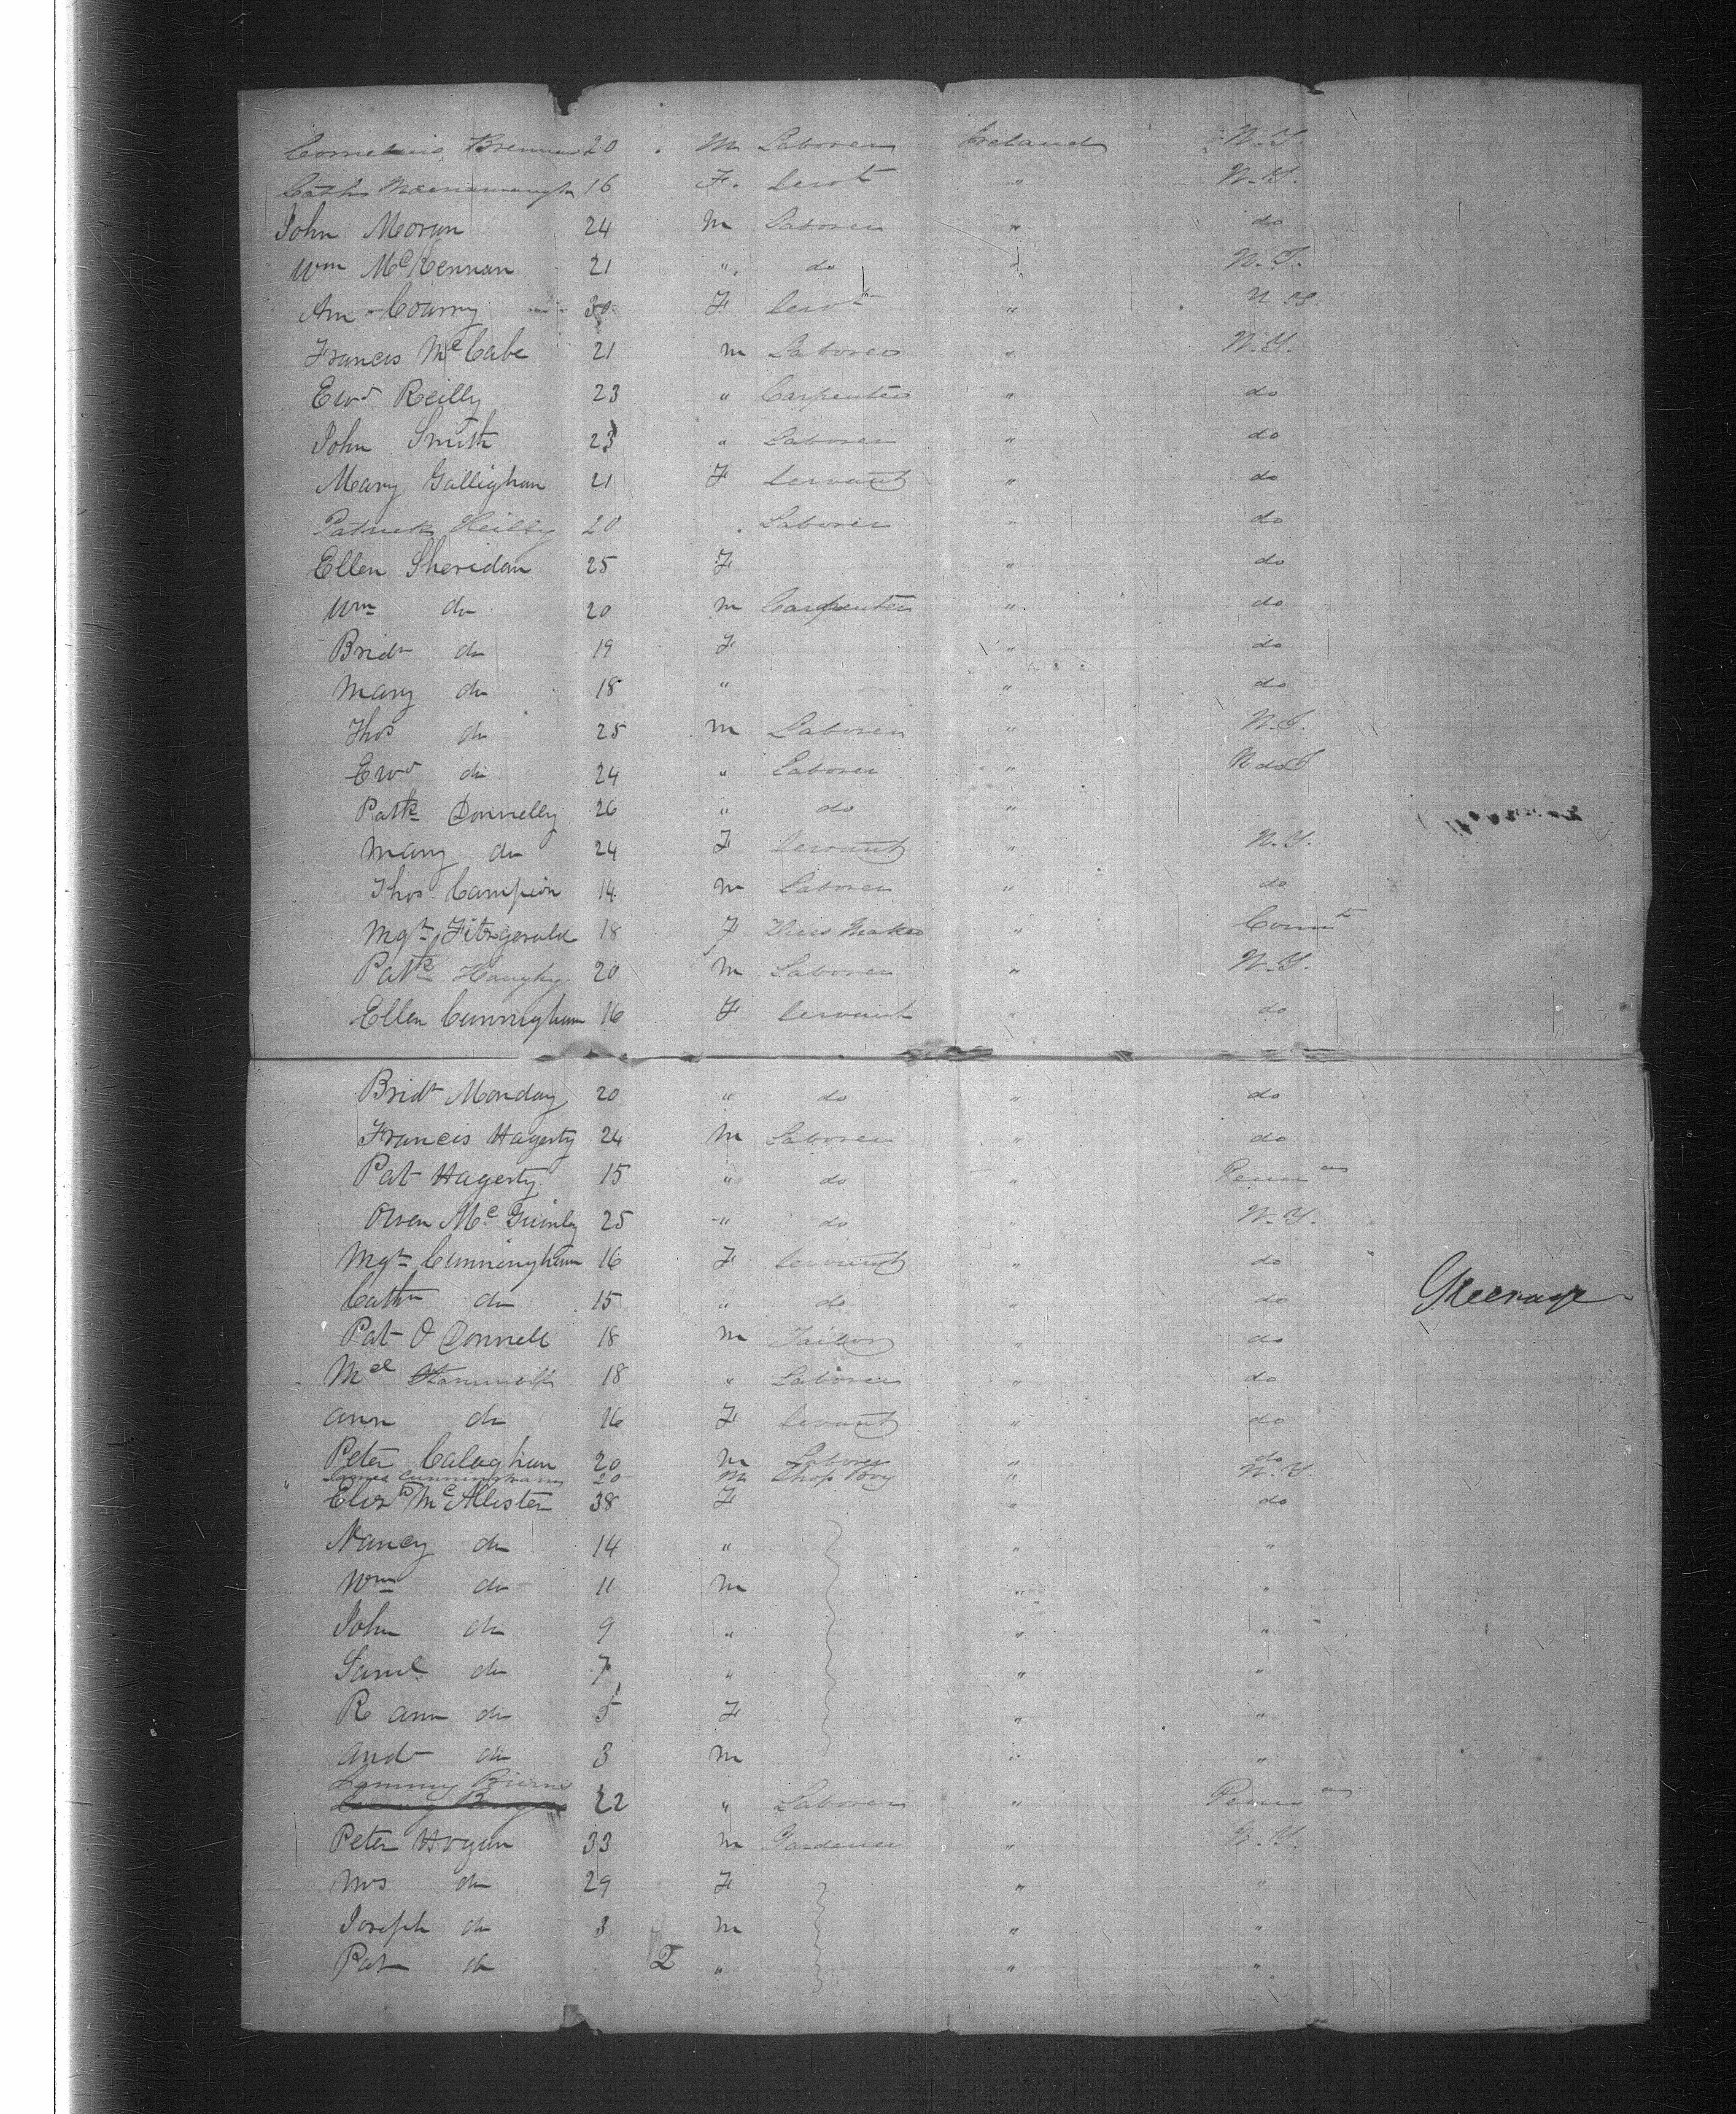 Cornelius Brennan 20 M Laborer Ireland N.Y.
Cath 16 F. Servt " N.Y.
John Moran 24 M Laborer " do
Wm McKennan 21 " do " N.Y.
Ann 30 F Servt " N.Y.
Francis McCabe 21 M Laborer " N.Y.
Ewd Reilly 23 " Carpenter " do
John Smith 23 " Laborer " do
Mary Gallighan 21 F Servant " do
Patrick Reilly 20 Laborer " do
Ellen Sheridan 25 F " do
Wm do 20 M Carpenter " do
Bridt do 19 F " do
Mary do 18 " " do
Thos do 25 M Laborer " N.Y.
Ewd do 24 " Laborer " N do Y
Patk Donnelly 26 " do "
Mary do 24 F Servant " N.Y.
Thos Campion 14 M Laborer " do
Mgt Fitzgerald 18 F Maker " Connt
Patk Haughy 20 M Laborer " N.Y.
Ellen Cunningham 16 F Servant " do
Bridt Monday 20 " do " do
Francis Hagerty 24 M Laborer " do
Pat Hagerty 15 " do " Penn
Owen McGuinly 25 " do " N.Y.
Mgt Cunningham 16 F Servant " do
Cathn do 15 " do " do Steerage
Pat O Donnell 18 M Tailor " do
Ml 18 " Laborer " do
Ann do 16 F Servant " do
Peter Calaghan 20 M Laborer " do
James Cunningham 20 M Shop Boy " N.Y.
Elizth McAllister 38 F " do
Nancy do 14 " " "
Wm do 11 M " "
John do 9 " " "
Saml do 7 " " "
R Ann do 5 F " "
Andw do 3 M " "
Bierne
22 " Laborer " Penn
Peter Hogan 33 M Gardener " N.Y.
Mrs do 29 F " "
Joseph do 3 M " "
Pat do 2 " " "